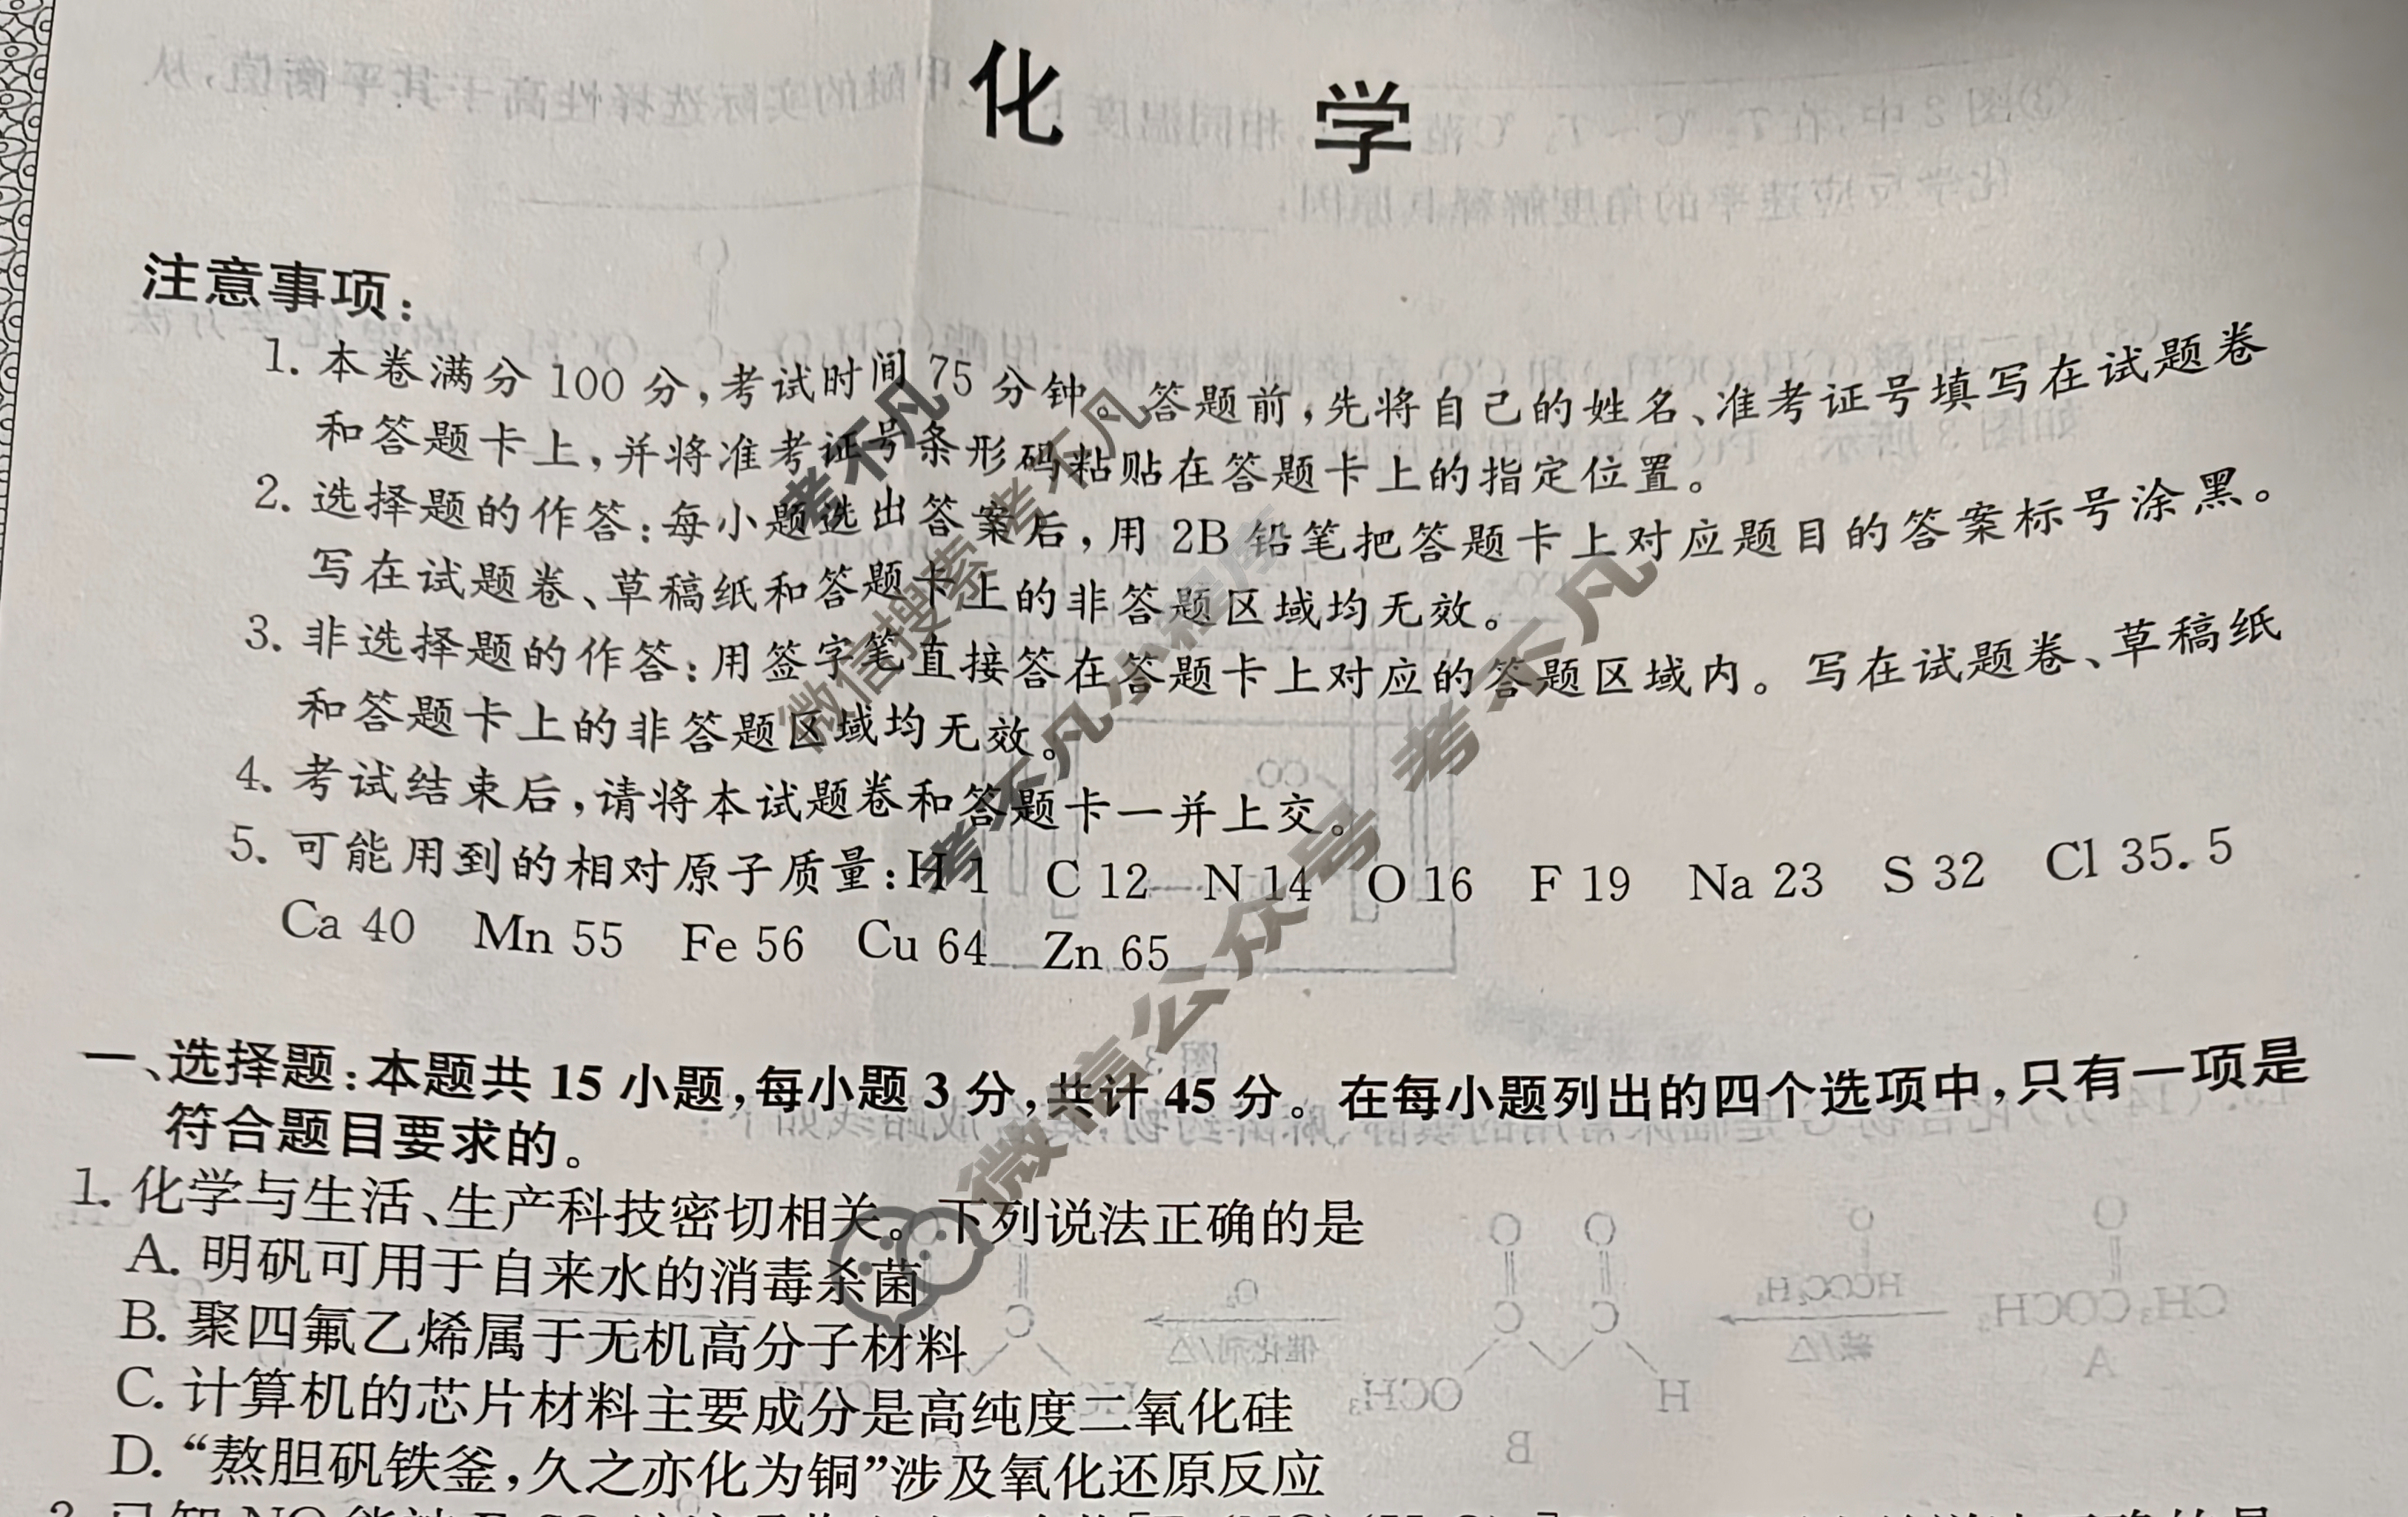 化 学
注意事项：
1. 本卷满分 100 分，考试时间 75 分钟。答题前，先将自己的姓名、准考证号填写在试题卷
和答题卡上，并将准考证号条形码粘贴在答题卡上的指定位置。
2. 选择题的作答：每小题选出答案后，用 2B 铅笔把答题卡上对应题目的答案标号涂黑。
写在试题卷、草稿纸和答题卡上的非答题区域均无效。
3. 非选择题的作答：用签字笔直接答在答题卡上对应的答题区域内。写在试题卷、草稿纸
和答题卡上的非答题区域均无效。
4. 考试结束后，请将本试题卷和答题卡一并上交。
5. 可能用到的相对原子质量：H 1 C 12 N 14 O 16 F 19 Na 23 S 32 Cl 35.5
Ca 40 Mn 55 Fe 56 Cu 64 Zn 65
一、选择题：本题共 15 小题，每小题 3 分，共计 45 分。在每小题列出的四个选项中，只有一项是
符合题目要求的。
1. 化学与生活、生产科技密切相关。下列说法正确的是
A. 明矾可用于自来水的消毒杀菌
B. 聚四氟乙烯属于无机高分子材料
C. 计算机的芯片材料主要成分是高纯度二氧化硅
D. “熬胆矾铁釜，久之亦化为铜”涉及氧化还原反应
考不凡
微信搜索 考不凡
考不凡小程序
微信公众号 考不凡